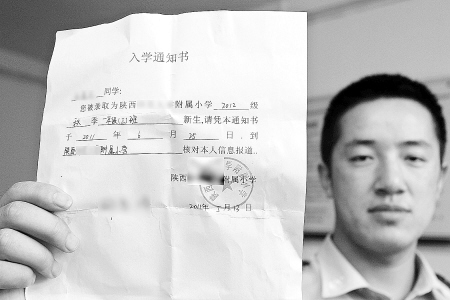 入学通知书
同学:
您被录取为陕西 附属小学 2012 级
秋 季 班 新生,请凭本通知书
于 2011 年 6 月 25 日,到
附属小学 核对本人信息报道.
陕西 附属小学
2011年 月 12日